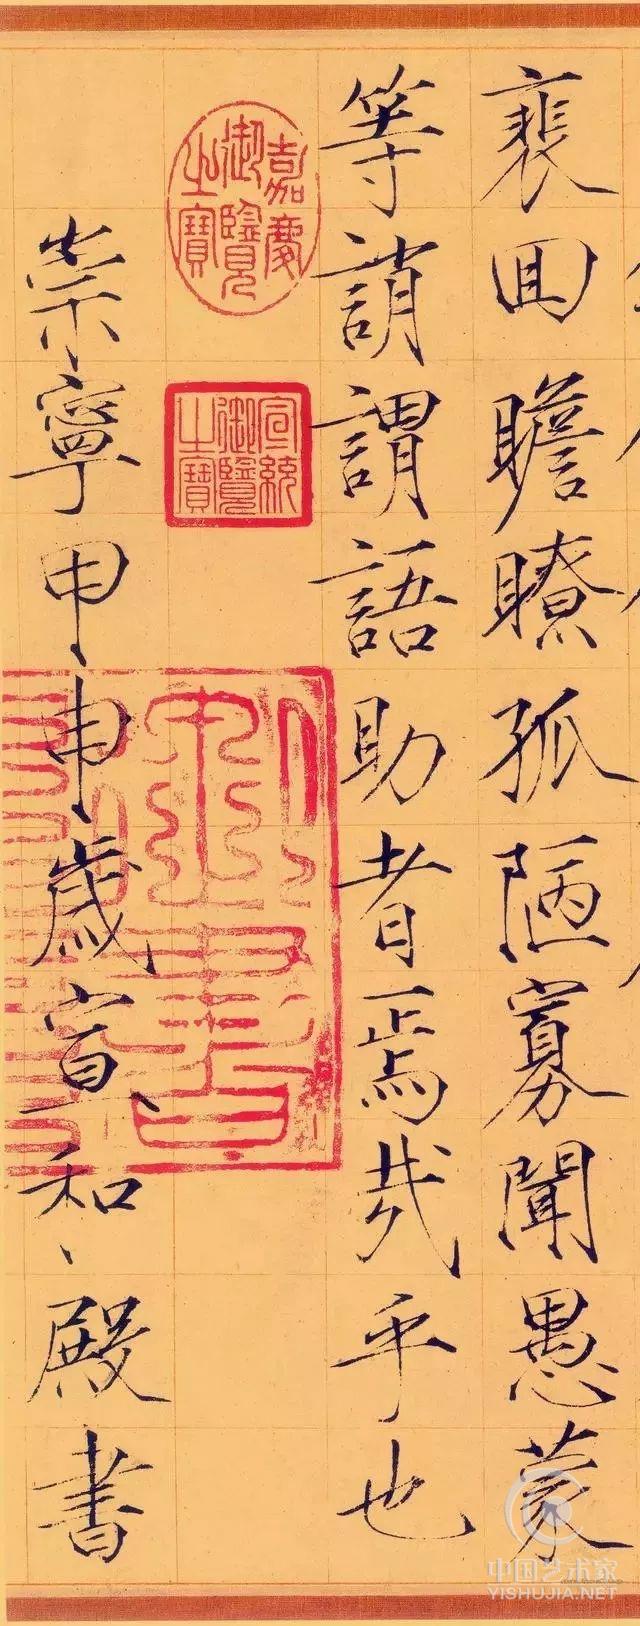 裴回瞻眺孤陋寡聞愚蒙
等誚謂語助者焉哉乎也
嘉慶御覽之寶
宣統御覽之寶
崇寧甲申歲宣和殿書
中国艺术家
YISHUJIA.NET